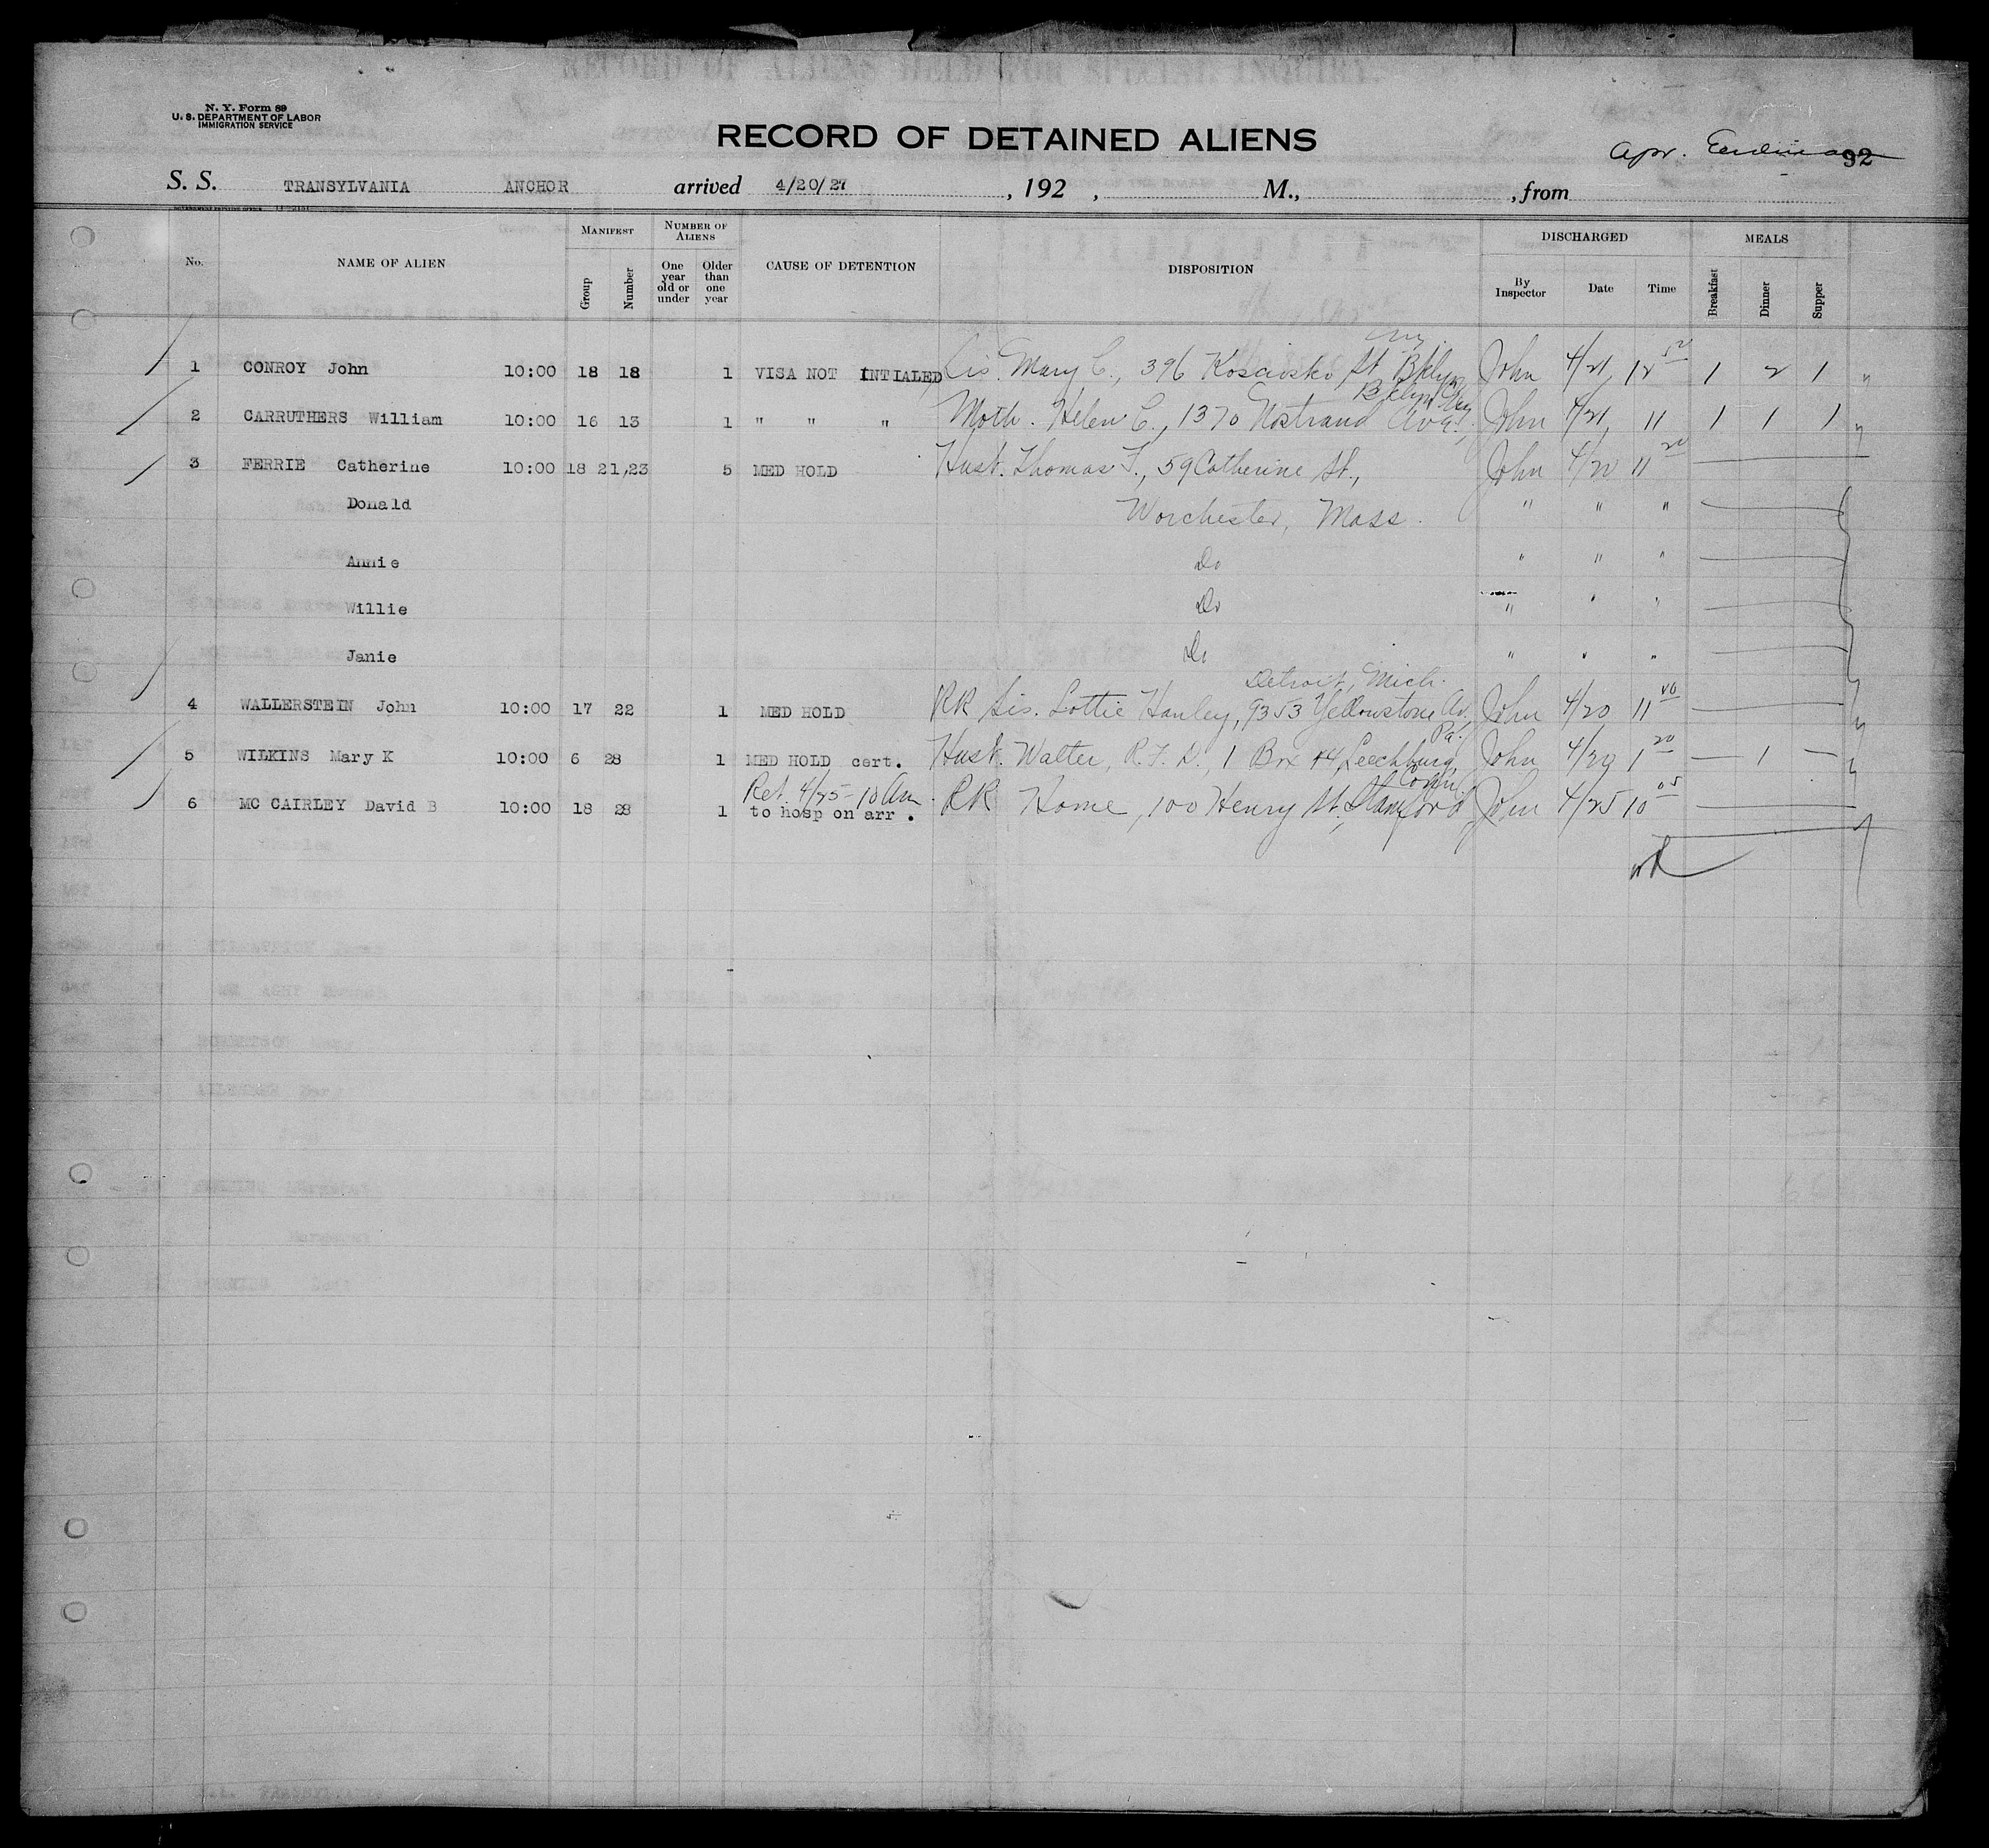 N. Y. Form 89
U. S. DEPARTMENT OF LABOR
IMMIGRATION SERVICE
RECORD OF DETAINED ALIENS
Apr. 92
S. S. TRANSYLVANIA ANCHOR arrived 4/20/27, 192 , M., , from
No. NAME OF ALIEN MANIFEST Group Number NUMBER OF ALIENS One year old or under Older than one year CAUSE OF DETENTION DISPOSITION DISCHARGED By Inspector Date Time MEALS Breakfast Dinner Supper
1 CONROY John 10:00 18 18 1 VISA NOT INTIALED Sis. Mary C., 396 Kosciosko St Bklyn NY. John 4/21 12 50 1 2 1
2 CARRUTHERS William 10:00 16 13 1 " " " Moth. Helen C., 1370 Nostrand Ave., Bklyn NY John 4/21 11 1 1 1
3 FERRIE Catherine 10:00 18 21,23 5 MED HOLD Husb. Thomas F., 59 Catherine St., John 4/20 11 20
Donald Worchester, Mass. " " "
Annie Do " " "
Willie Do " " "
Janie Do " " "
4 WALLERSTEIN John 10:00 17 22 1 MED HOLD RR Sis. Lottie Hanley, 9353 Yellowstone Av. Detroit, Mich. John 4/20 11 40
5 WILKINS Mary K 10:00 6 28 1 MED HOLD cert. Husb. Walter, R.F.D., 1 Box 44, Leechburg, Pa. John 4/20 1 20 — 1 —
6 MC CAIRLEY David B 10:00 18 28 1 Ret. 4/25-10 Am. to hosp on arr. RR Home, 100 Henry St., Stamford, Conn. John 4/25 10 05